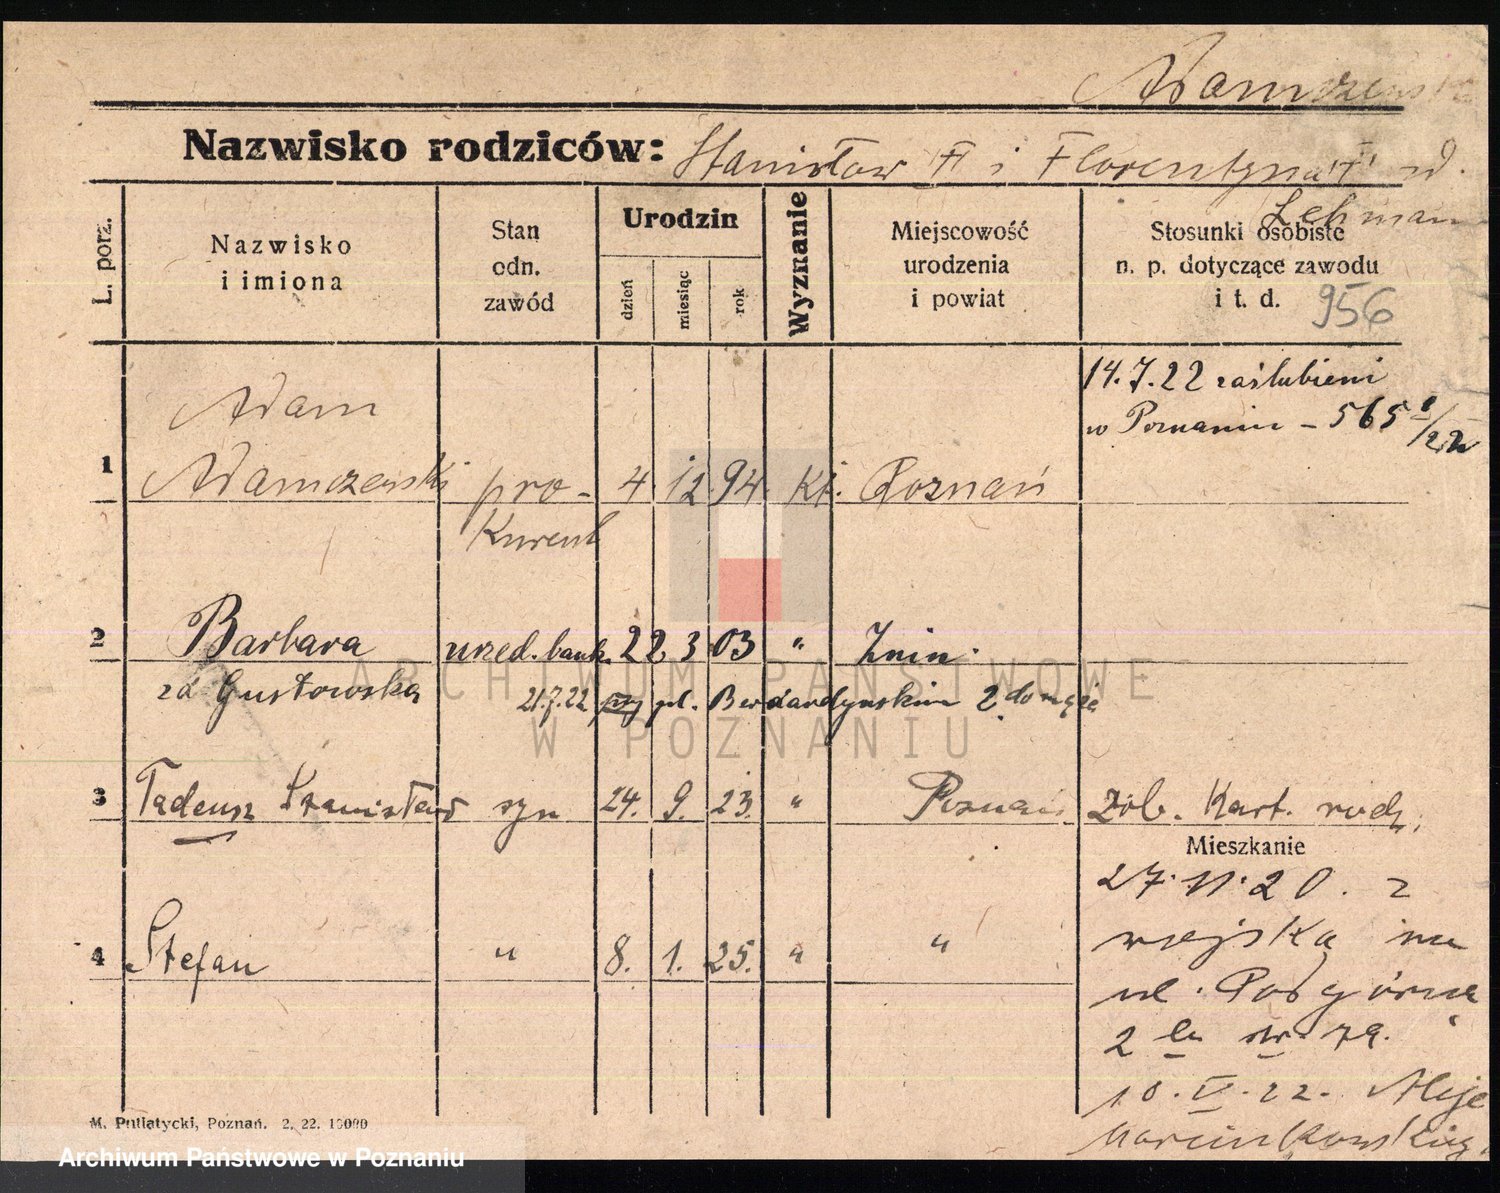 Adamczewski
Nazwisko rodziców: Stanisław i Florentyna d.
Lehman
L. porz.
Nazwisko
i imiona
Stan
odn.
zawód
Urodzin
dzień
miesiąc
rok
Wyznanie
Miejscowość
urodzenia
i powiat
Stosunki osobiste
n. p. dotyczące zawodu
i t. d. 956
14.7.22 zaślubieni
w Poznaniu – 565
Adam
1 Adamczewski pro- 4. 12. 94. kt. Poznań
kurent
2 Barbara urzed. bank. 22 3 03 " Żnin.
zd Gustowska 21.7.22 pl. Bernardyńskim 2 do męża
3 Tadeusz Stanisław syn 24. 9. 23. " Poznań Zob. Kart. rodz.
Mieszkanie
27.11.20. z
wojska na
ul. Podgórna
2
4 Stefan " 8. 1. 25. " "
10.V.22. Aleje
Marcinkowskiego
M. Putiatycki, Poznań. 2, 22. 10000
ARCHIWUM PAŃSTWOWE
W POZNANIU
Archiwum Państwowe w Poznaniu